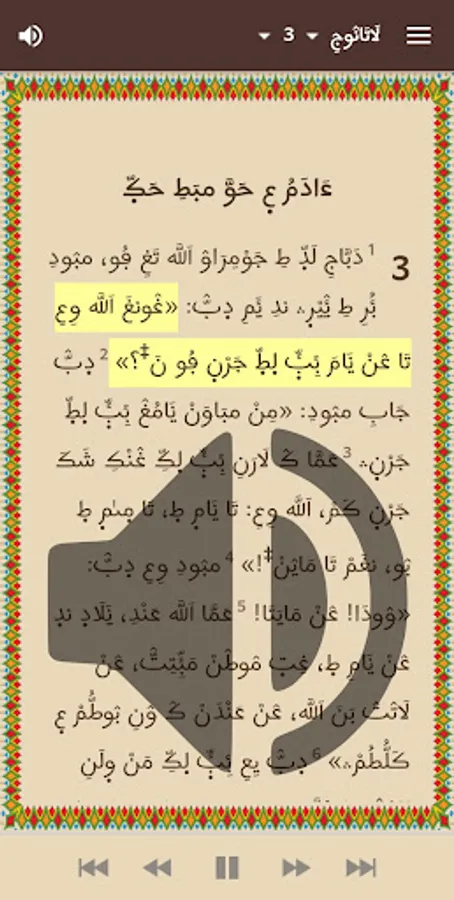 لَاتَانٜوجِ 3
ءَادَمُ عٜ حَوَّ مبَطِ حَكّٜ
3 1 دَبَّاجِ لَدّٜ طِ جَوْمِرَاوْ اَللَّه تَغِ فُو، مبٜودِ
بُرِ طِ پٛيْرٜ. ندِ يَمِ دٜبّٛ: «غٛونغَ اَللَّه وِعِ
تَا عٛنْ يَامَ بِبّٜ لٜطّٜ جَرْنٜ فُو نَ‡؟» 2 دٜبّٛ
جَابِ مبٜودِ: «مِنْ مبَاوَنْ يَامُغٛ بِبّٜ لٜطّٜ
جَرْنٜ. 3 عَمَّا کٛ لَارَنِ بِبّٜ لٜکّٜ غٛنْکِ شَکَ
جَرْنٜ کَمْ، اَللَّه وِعِ: تَا يَامٜ طٜ، تَا مٜمٜ طٜ
بٛو، نغَمْ تَا مَايٛنْ‡!» 4 مبٜودِ وِعِ دٜبّٛ:
«وٛودَا! عٛنْ مَايَتَا! 5 عَمَّا اَللَّه عَنْدِ، يَلَادٜ ندٜ
عٛنْ يَامِ طٜ، غِتٜ مٛوطٛنْ مَبِّتٛتٛ، عٛنْ
لَاتٛتٛ بَنَ اَللَّه، عٛنْ عَنْدَنْ کٛ وٛنِ بٛوطُّمْ عٜ
کَلُّطُمْ.» 6 دٜبّٛ يِعِ بِبّٜ لٜکّٜ مَنْ وٜلَنِ